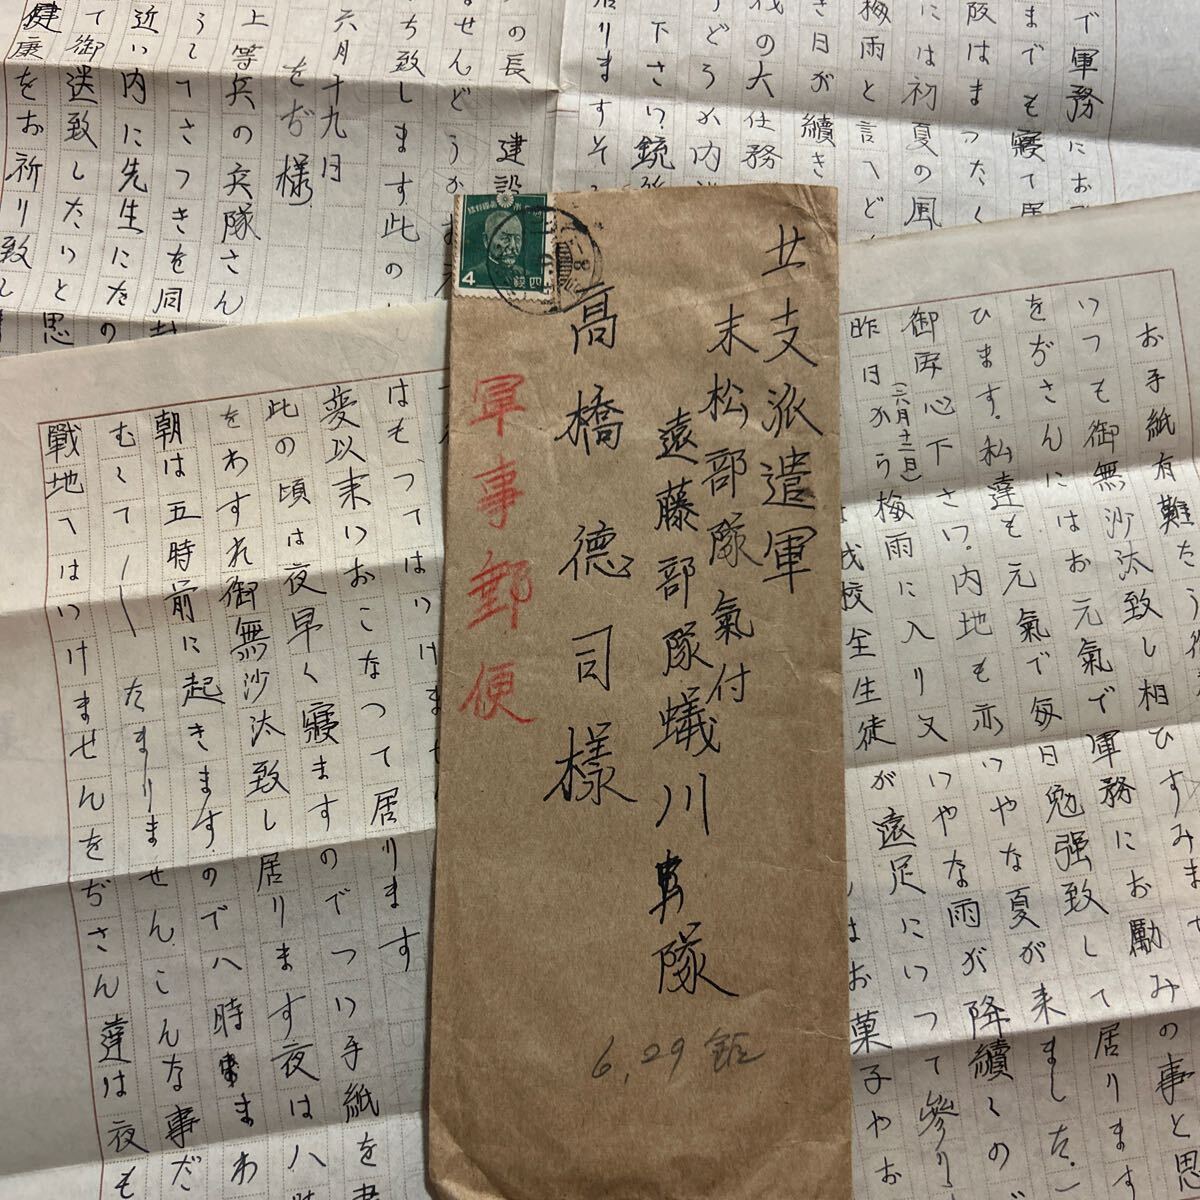 北支派遣軍
末松部隊氣付
遠藤部隊蟻川隊
高橋德司樣
軍事郵便
6,29
4
四錢
お手紙有難たう
いつも御無沙汰致し相ひすみませ
をぢさんにはお元氣で軍務にお勵みの事と思
ひます。私達も元氣で每日勉强致して居ります
御安心下さい。内地も亦いやな夏が來ました。
(六月十二日)
昨日から梅雨に入り又いやな雨が降續くの
我校全生徒が遠足にいつて參り
はお菓子やお
はもつてはいけま
変以来いおこなつて居ります
此の頃は夜早く寢ますのでつい手紙を書
をわすれ御無沙汰致し居ります夜は八時
朝は五時前に起きますので八時まわ
むくてたまりませんこんな事だ
戰地ではいけませんをぢさん達は夜も
で軍務にお
までも寢て居
阪はまつたく
には初夏の風
梅雨と言へど
き日が續き
伐の大任務
どうか内
下さい銃後
居りますそ
の長 建設
ませんどうか
ち致します此の
六月十九日
をぢ樣
上等兵の兵隊さん
うしてさつきを同封
近い内に先生にたの
て御送致したいと思
健康をお祈り致し